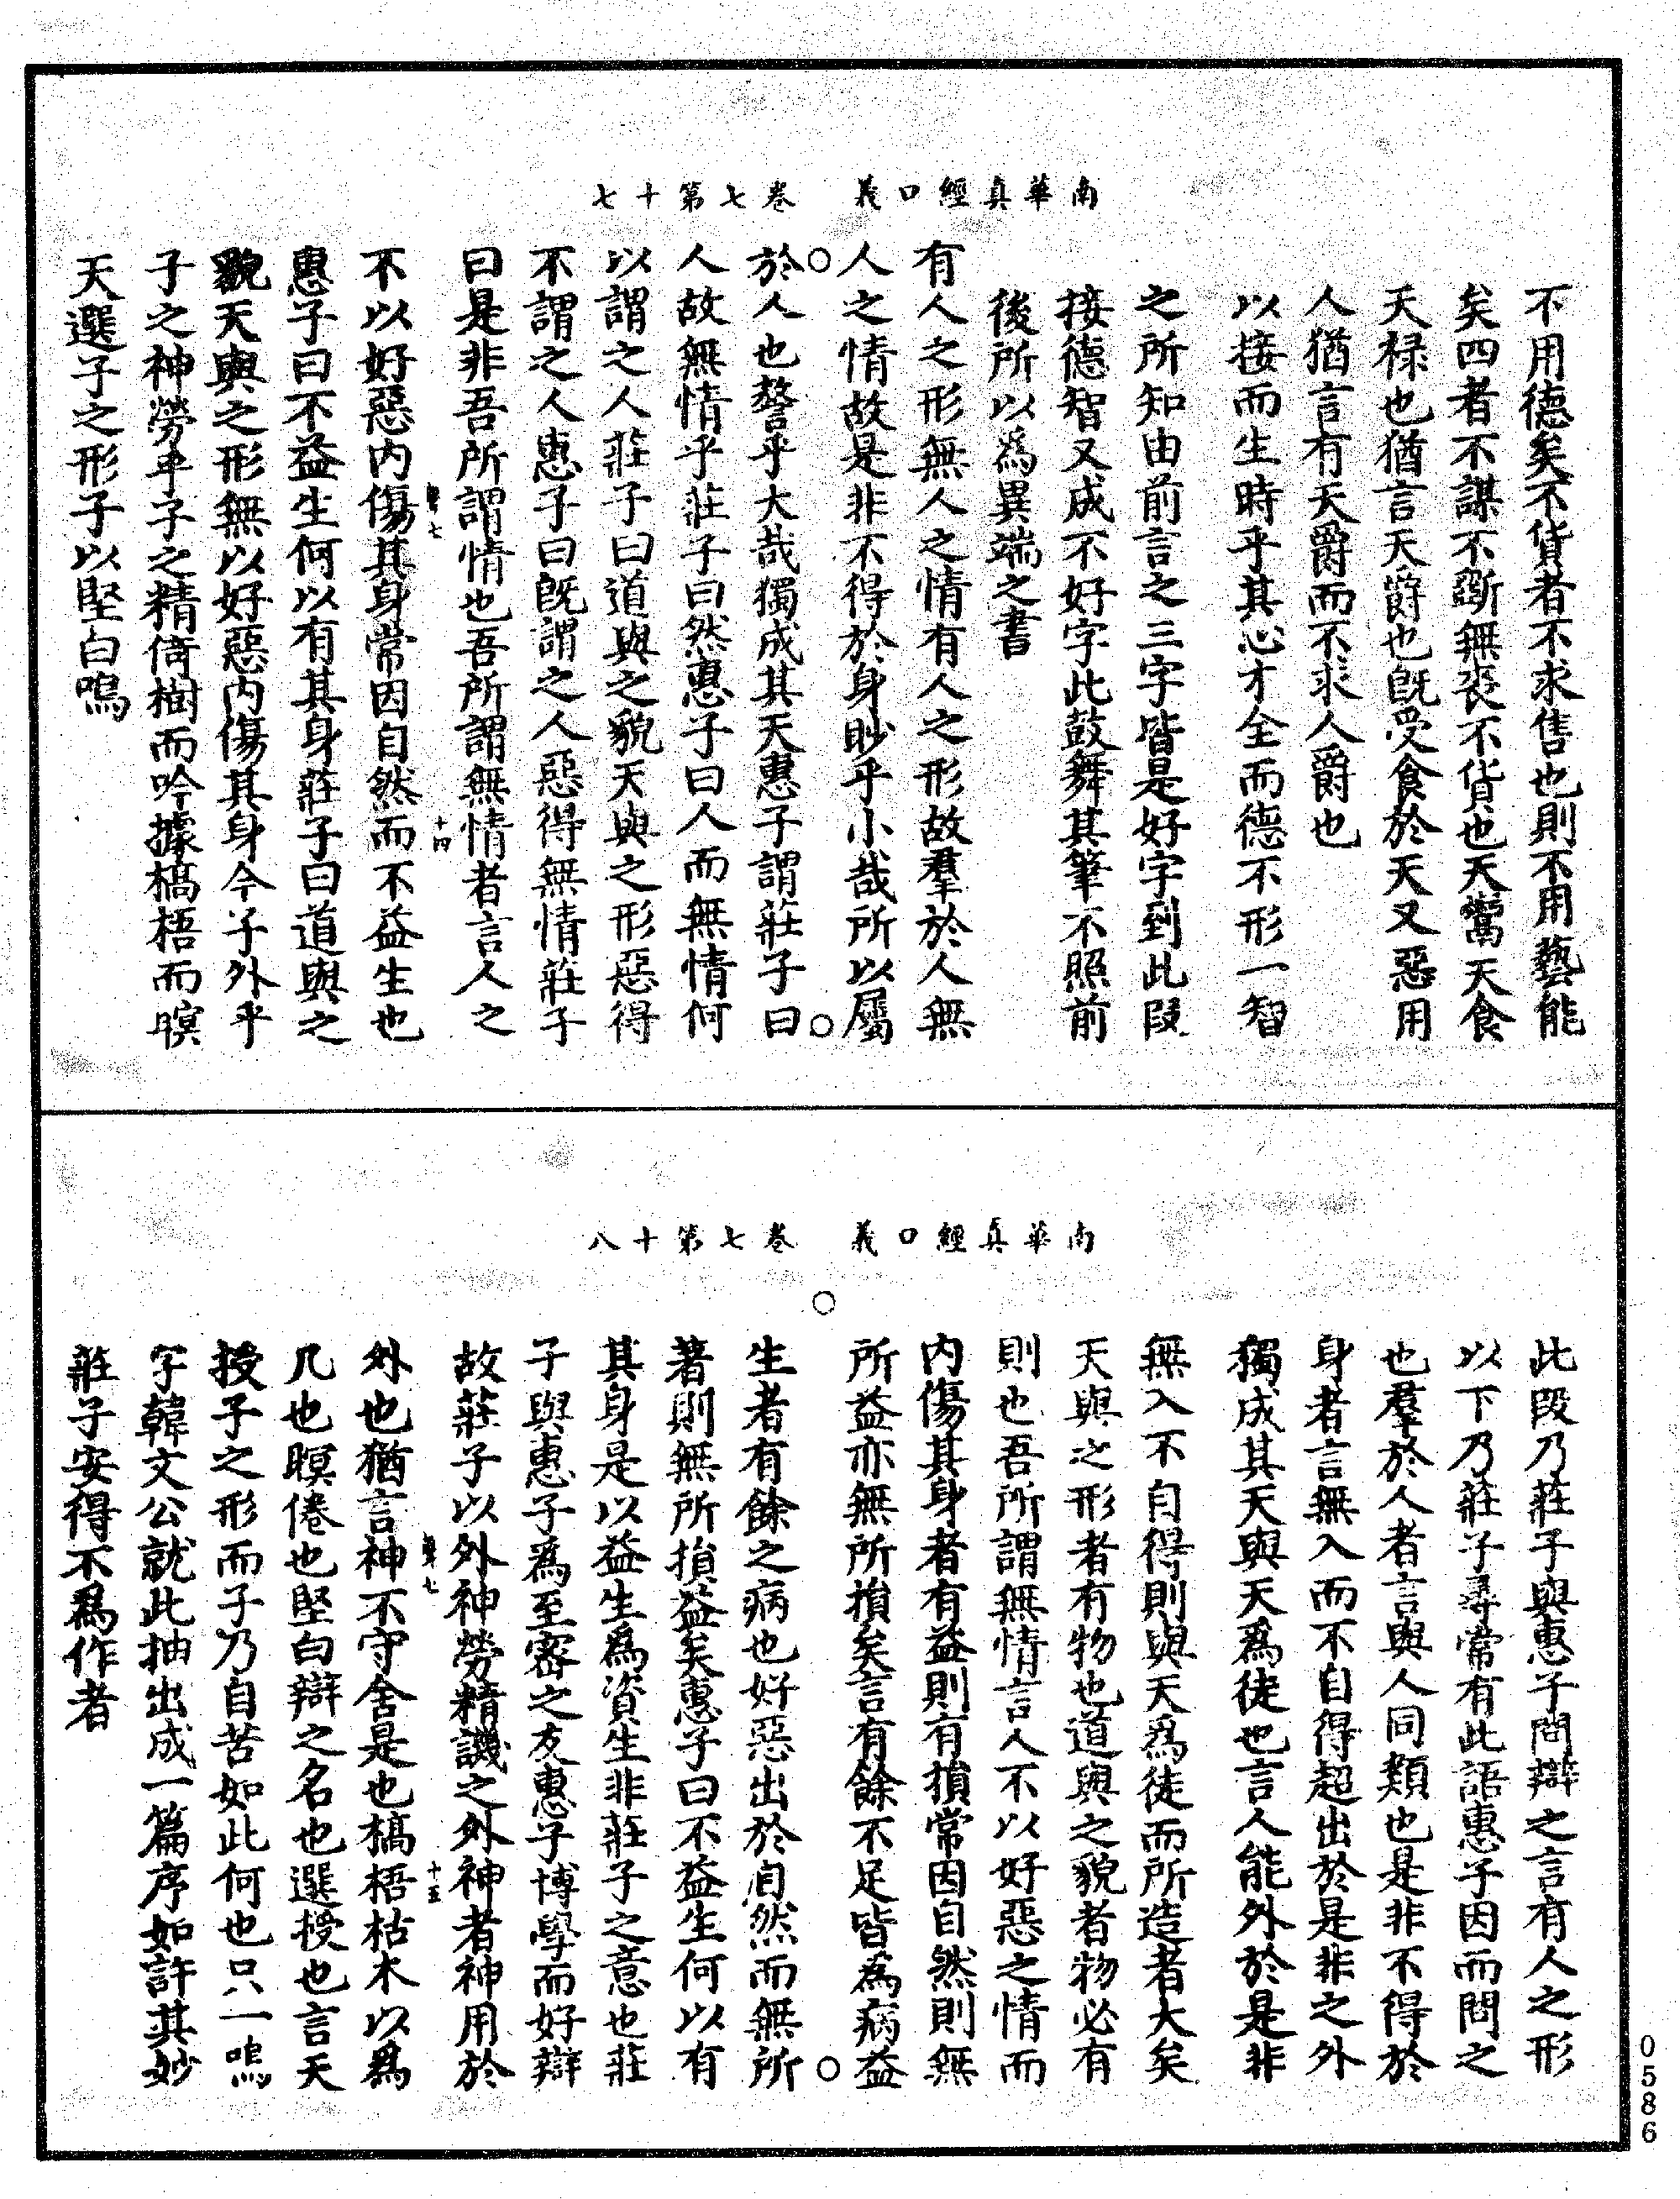 南華真經口義　卷七第十七
不用德矣不貨者不求售也則不用藝能
矣四者不謀不斲無喪不貨也天鬻天食
天祿也猶言天爵也旣受食於天又惡用
人猶言有天爵而不求人爵也
以接而生時乎其心才全而德不形一智
之所知由前言之三字皆是好字到此段
接德智又成不好字此鼓舞其筆不照前
後所以爲異端之書
有人之形無人之情有人之形故羣於人無
人之情故是非不得於身眇乎小哉所以屬
於人也謷乎大哉獨成其天惠子謂莊子曰
人故無情乎莊子曰然惠子曰人而無情何
以謂之人莊子曰道與之貌天與之形惡得
不謂之人惠子曰旣謂之人惡得無情莊子
曰是非吾所謂情也吾所謂無情者言人之
不以好惡內傷其身常因自然而不益生也
惠子曰不益生何以有其身莊子曰道與之
貌天與之形無以好惡內傷其身今子外乎
子之神勞乎子之精倚樹而吟據槁梧而瞑
天選子之形子以堅白鳴
十四
南華真經口義　卷七第十八
此段乃莊子與惠子問辯之言有人之形
以下乃莊子尋常有此語惠子因而問之
也羣於人者言與人同類也是非不得於
身者言無入而不自得超出於是非之外
獨成其天與天爲徒也言人能外於是非
無入不自得則與天爲徒而所造者大矣
天與之形者有物也道與之貌者物必有
則也吾所謂無情言人不以好惡之情而
內傷其身者有益則有損常因自然則無
所益亦無所損矣言有餘不足皆為病益
生者有餘之病也好惡出於自然而無所
著則無所損益矣惠子曰不益生何以有
其身是以益生爲資生非莊子之意也莊
子與惠子爲至密之友惠子博學而好辯
故莊子以外神勞精譏之外神者神用於
外也猶言神不守舍是也槁梧枯木以爲
几也瞑倦也堅白辯之名也選授也言天
授子之形而子乃自苦如此何也只一鳴
字韓文公就此抽出成一篇序如許其妙
莊子安得不爲作者
十五
0586